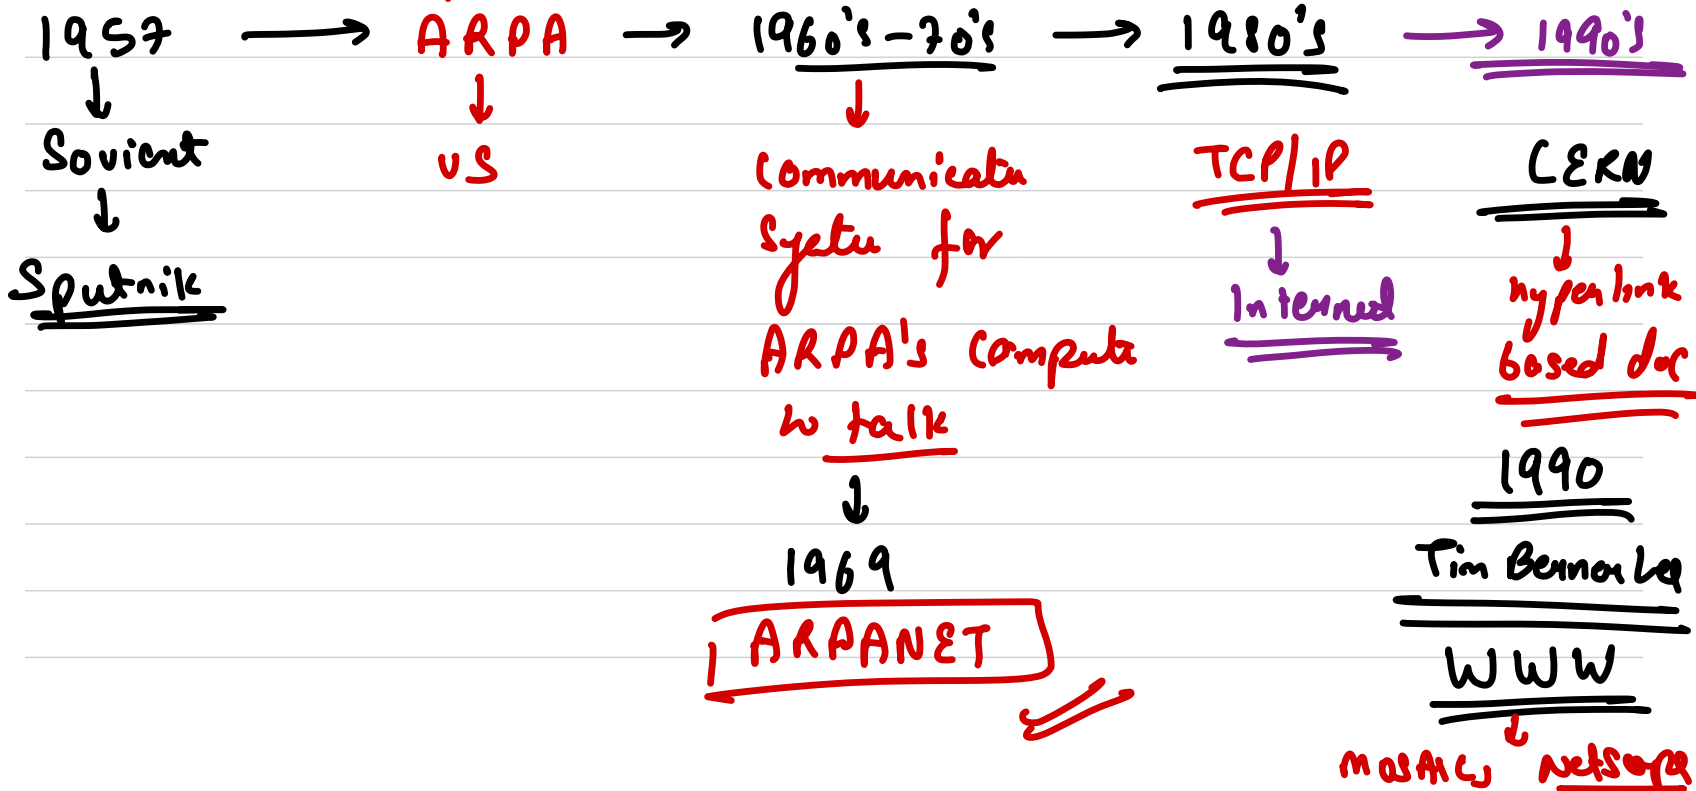 1957 → ARPA → 1960's-70's → 1980's → 1990's
↓
Sovient
↓
Sputnik
↓
US
↓
Communicatu
Systu for
ARPA's Compute
to talk
↓
1969
ARPANET
TCP/IP
↓
Interned
CERN
↓
hyperlink
based doc
1990
Tim Berner Lee
WWW
↓
MOSAIC, Netscape